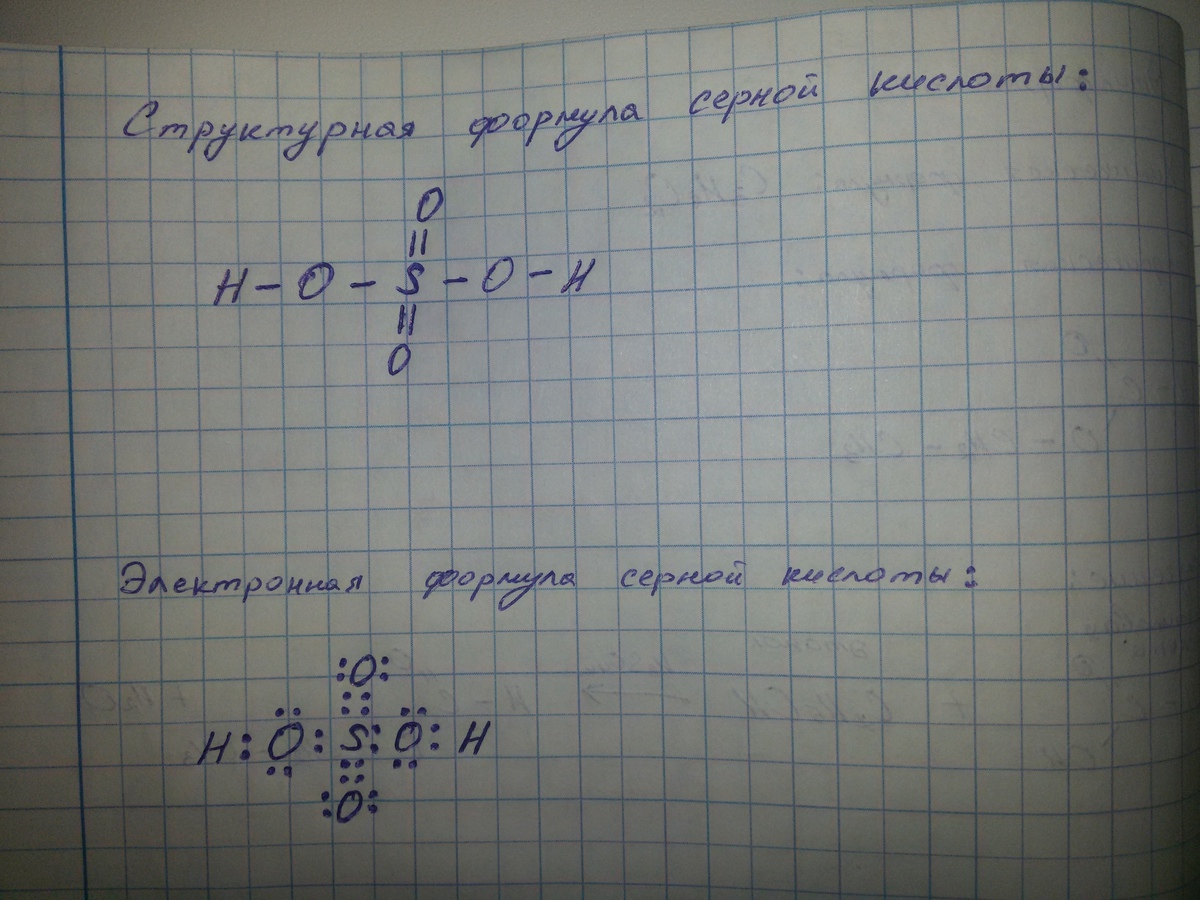 Структурная формула серной кислоты:
O
||
H – O – S – O – H
||
O
Электронная формула серной кислоты:
:O:
:: 
H:O:S:O:H
::
:O: